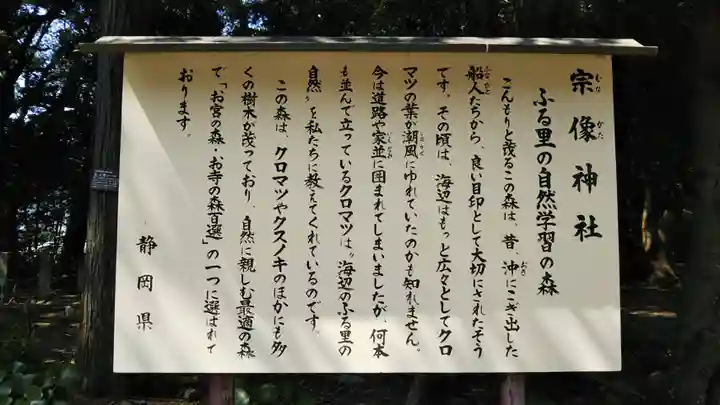 宗像神社
ふる里の自然学習の森
こんもりと茂るこの森は、昔、沖にこぎ出した
船人たちから、良い目印として大切にされたそう
です。その頃は、海辺はもっと広々としてクロ
マツの葉が潮風にゆれていたのかも知れません。
今は道路や家並に囲まれてしまいましたが、何本
も並んで立っているクロマツは〝海辺のふる里の
自然〟を私たちに教えてくれているのです。
この森は、クロマツやクスノキのほかにも多
くの樹木が茂っており、自然に親しむ最適の森
で「お宮の森・お寺の森百選」の一つに選ばれて
おります。
静岡県